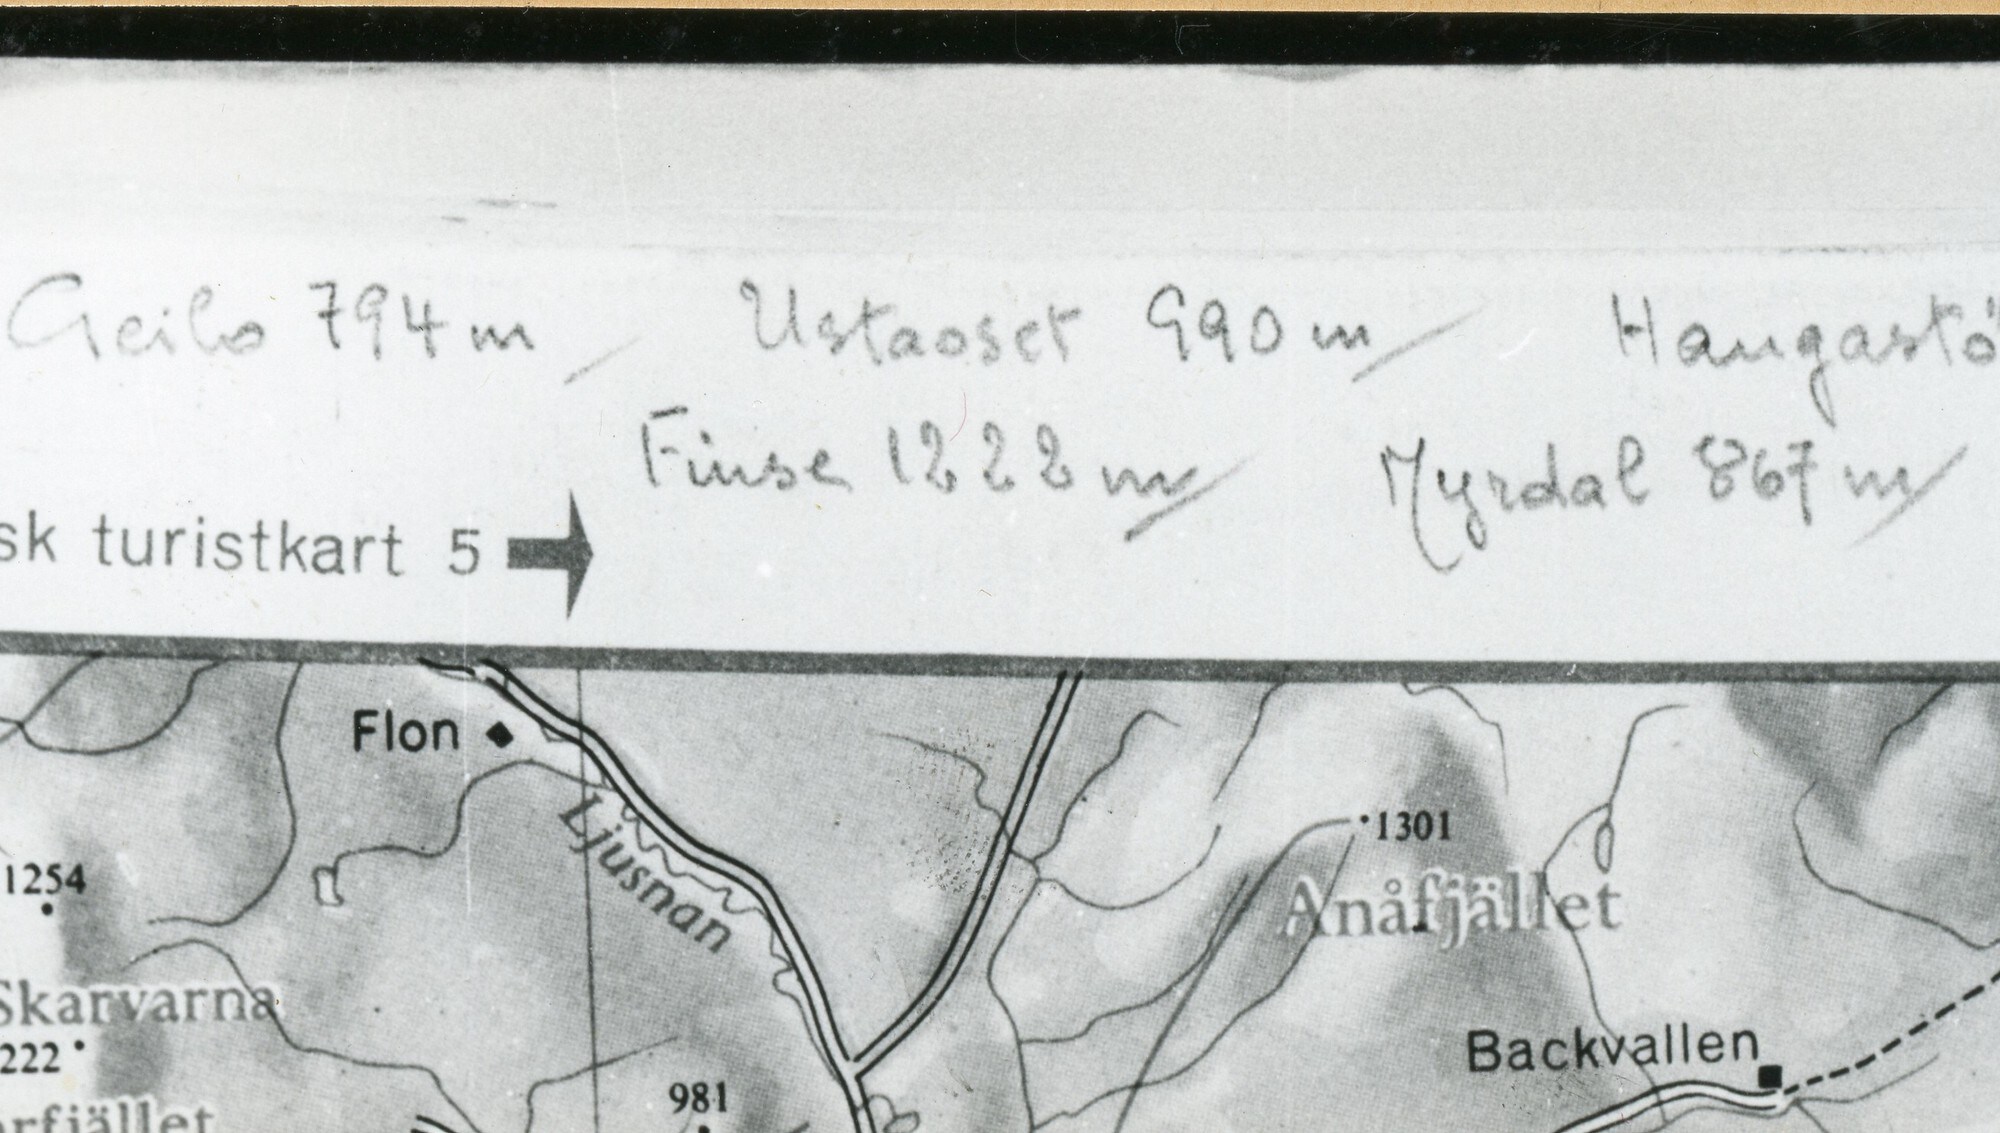 Geilo 794 m / Ustaoset 990 m / Haugastö
Finse 1222 m / Myrdal 867 m /
sk turistkart 5
Flon
Ljusnan
1301
1254
Anåfjället
Skarvarna
222
Backvallen
981
rfjället